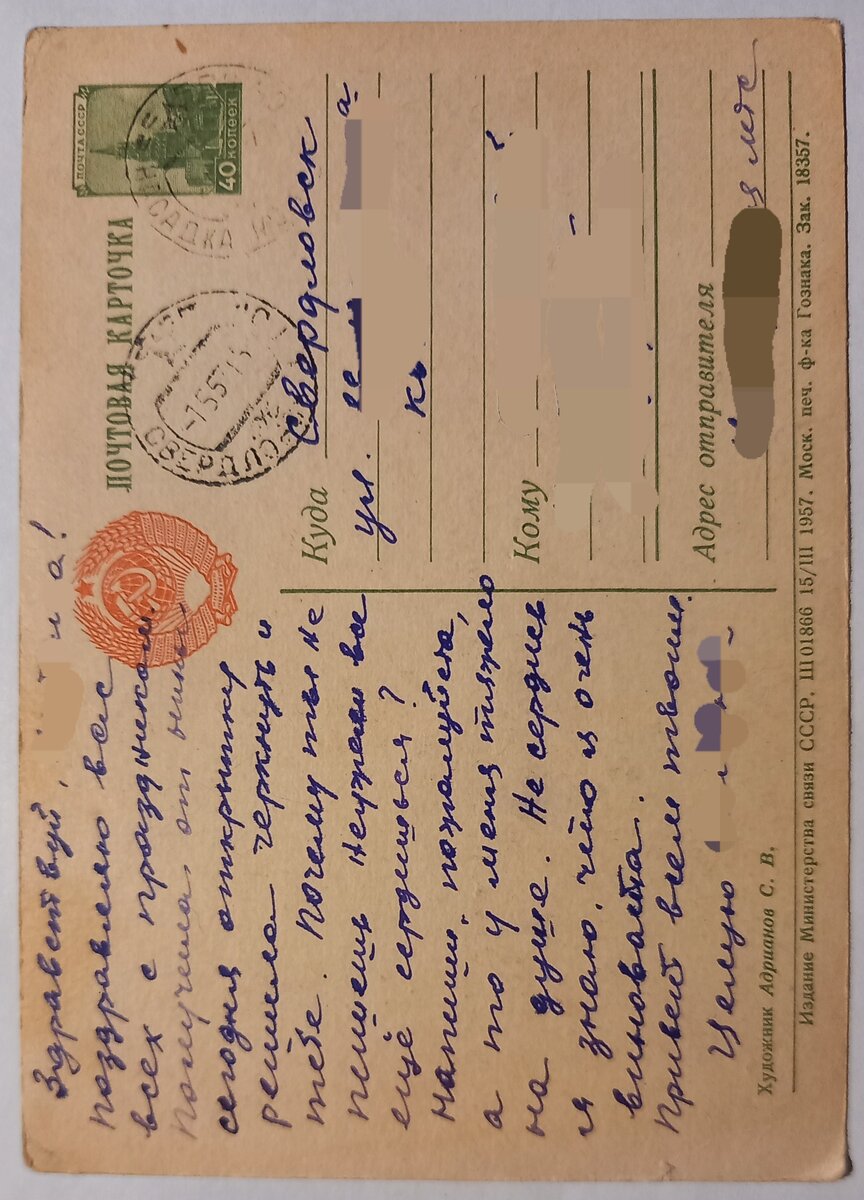 ПОЧТОВАЯ КАРТОЧКА
ПОЧТА СССР
40 КОПЕЕК
САДКА
СВЕРДЛОВСК
-1 5 57
Здравствуй,
поздравляю вас
всех с праздником.
Получила от
сегодня открытку
решила черкнуть и
тебе. Почему ты не
пишешь неужели все
ещё сердишься?
Напиши, пожалуйста,
а то у меня тяжело
на душе. Не сердись
я знаю, что я очень
виновата.
Привет всем твоим.
Целую
Куда Свердловск
ул.
Кому
Адрес отправителя
Художник Адрианов С. В.
Издание Министерства связи СССР. Ш 01866 15/III 1957. Моск. печ. ф-ка Гознака. Зак. 18357.